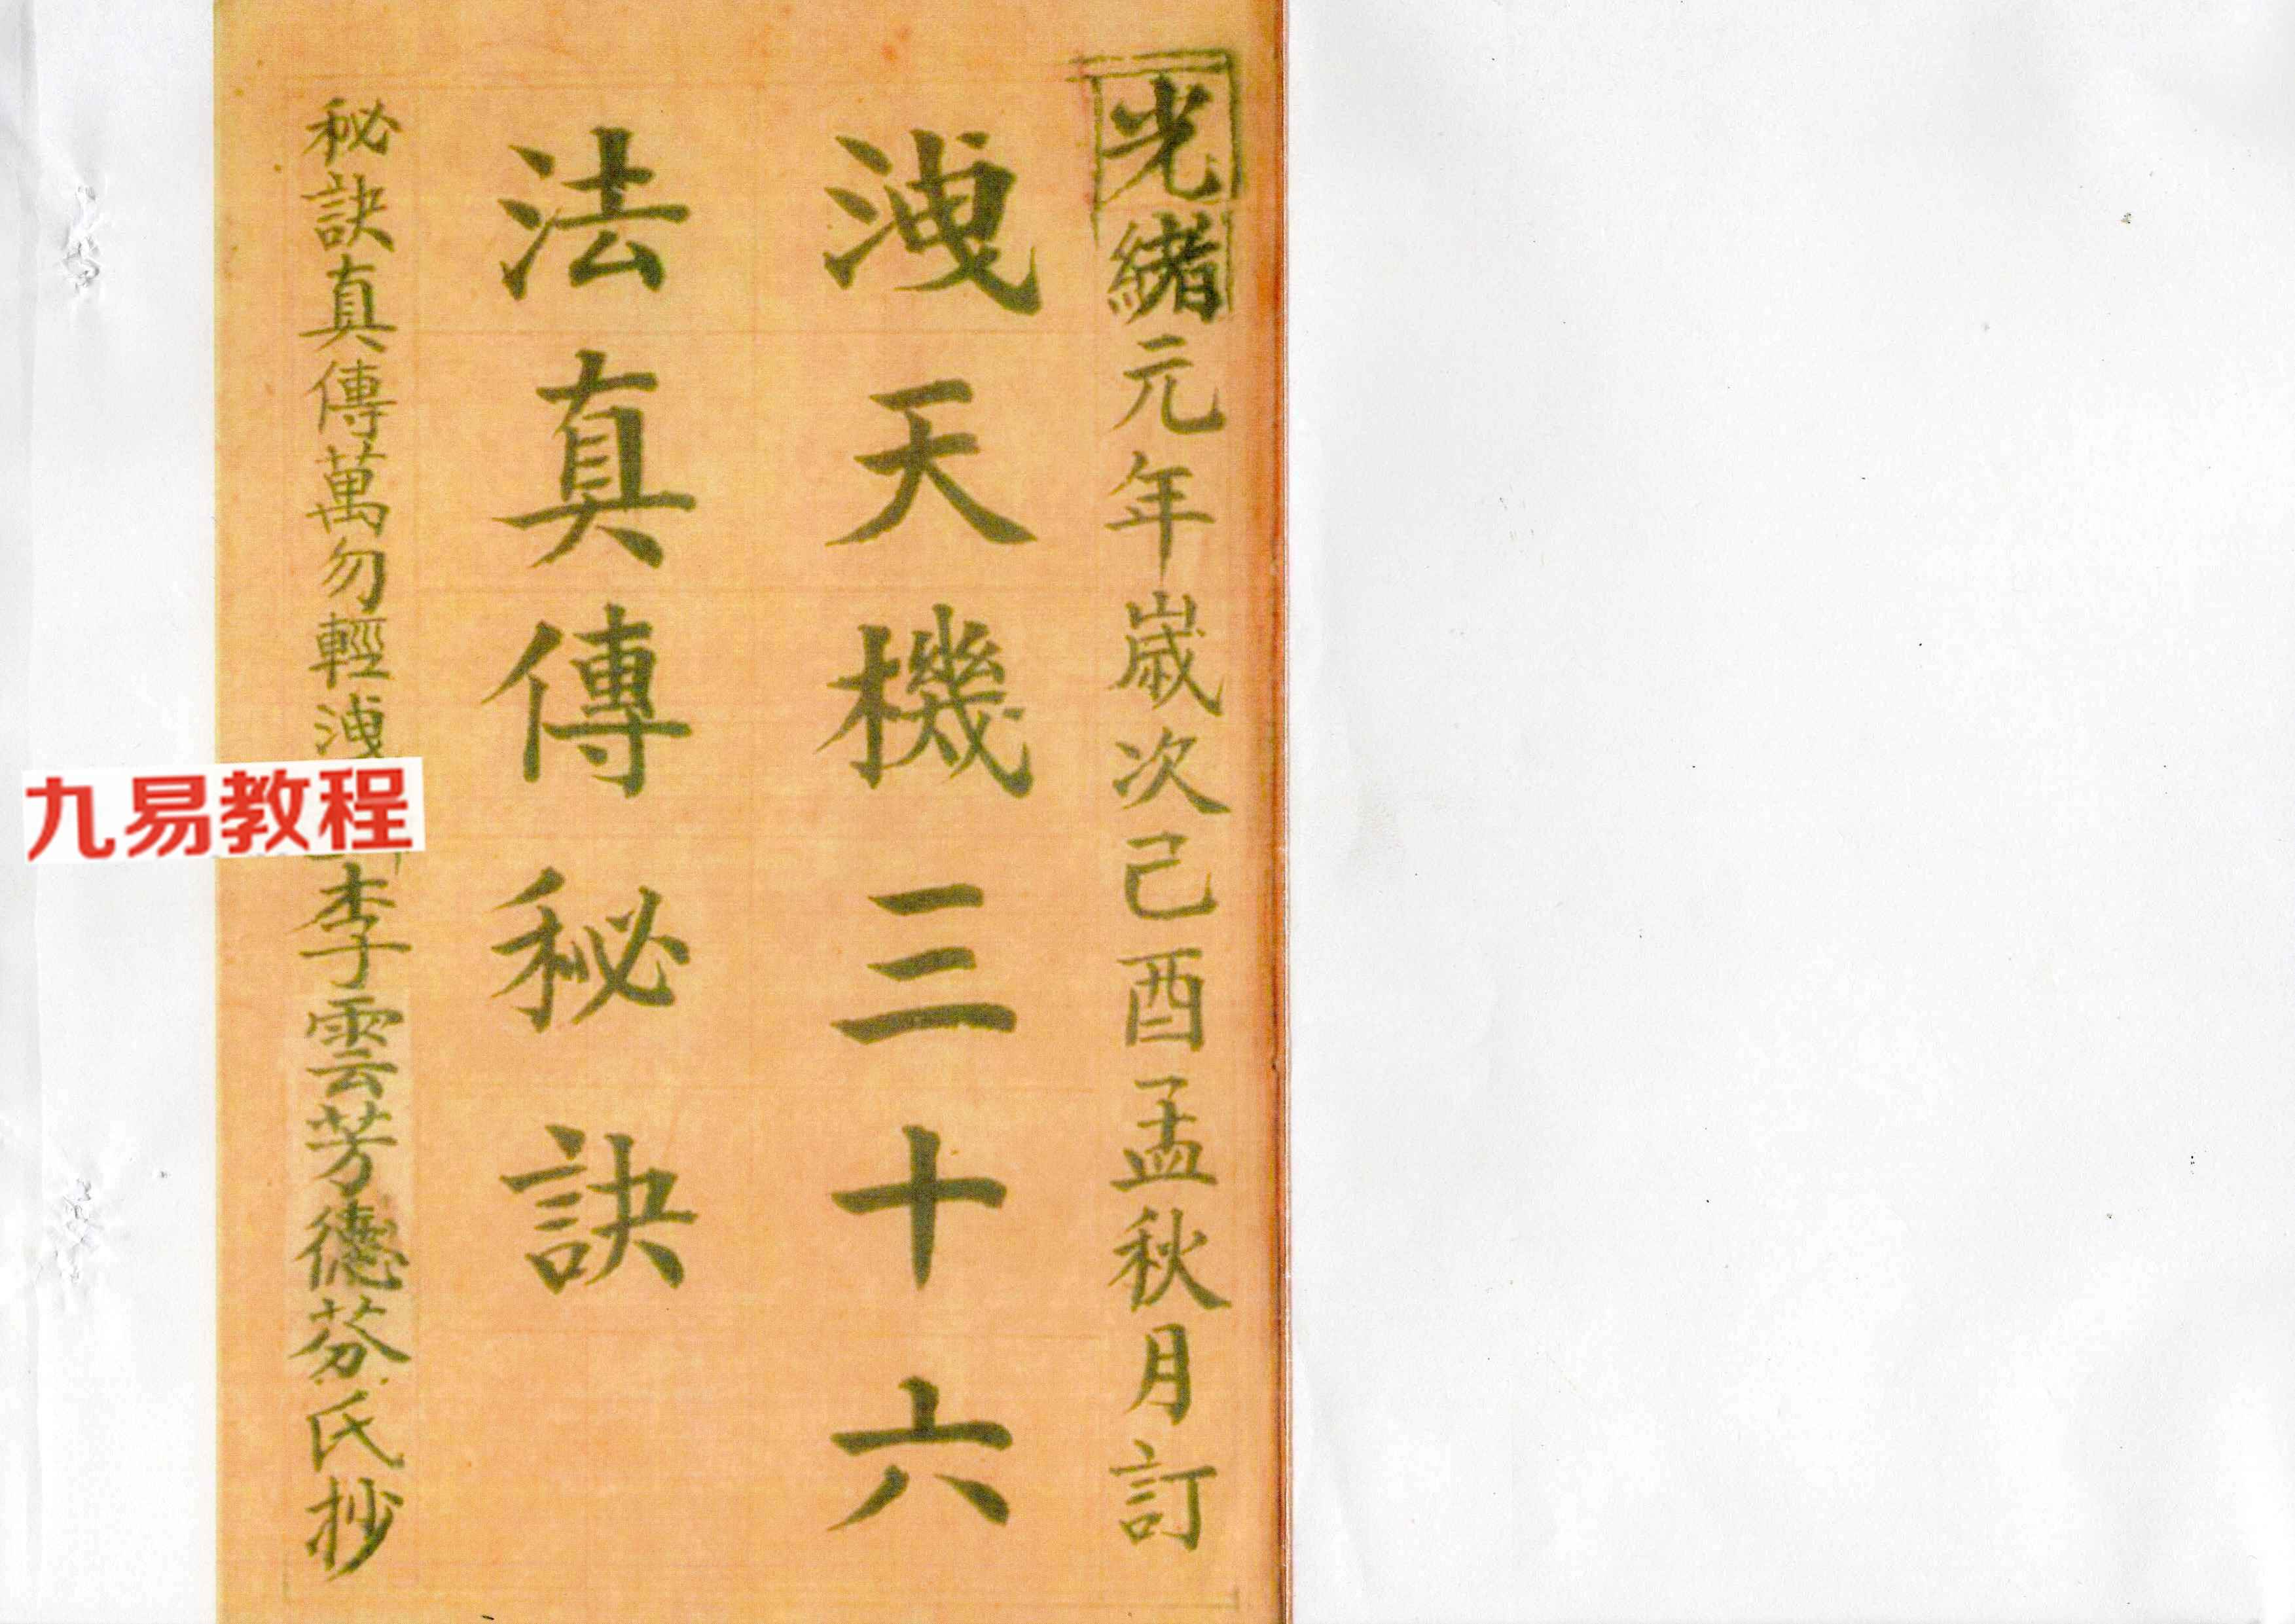 光緒元年歲次己酉孟秋月訂
洩天機三十六
法真傳秘訣
秘訣真傳萬勿輕洩
李雲芳德芬氏抄
九易教程